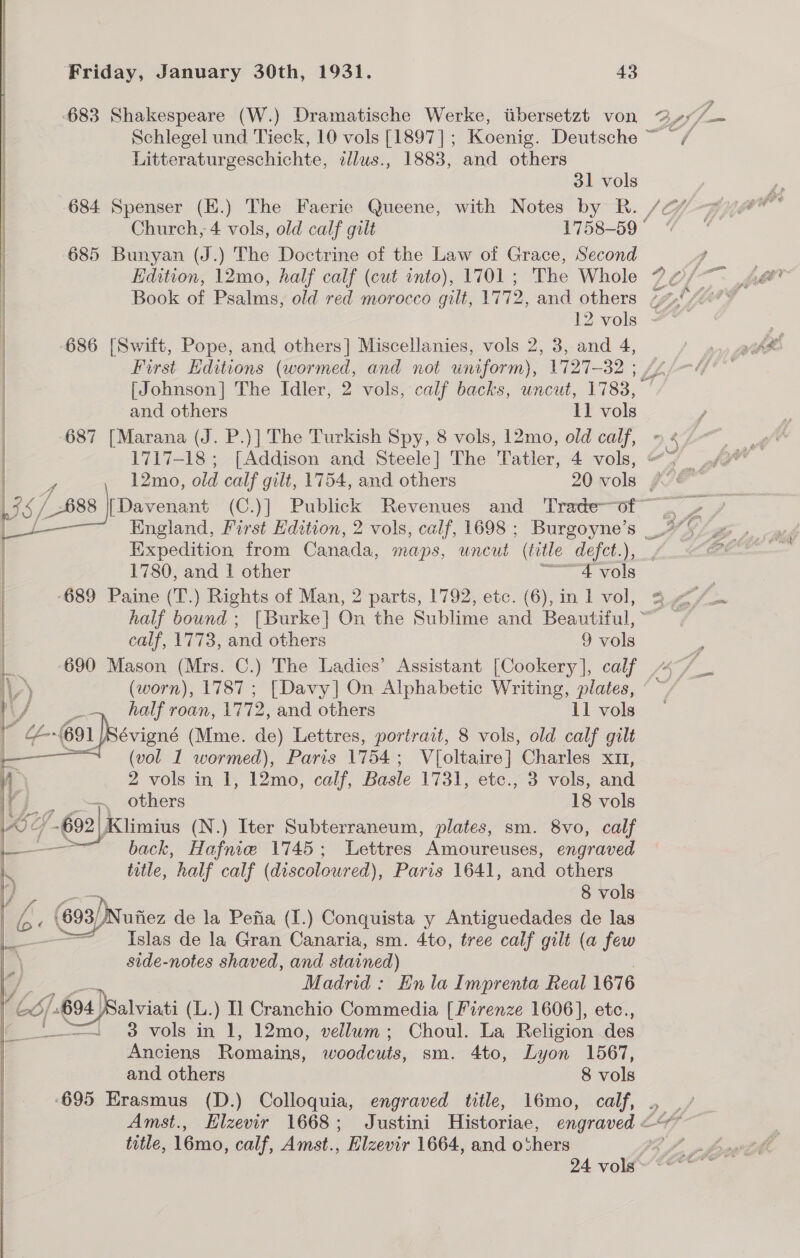 Friday, January 30th, 1931. 43
683 Shakespeare (W.) Dramatische Werke, übersetzt von
Schlegel und Tieck, 10 vols [1897]; Koenig. Deutsche
Litteraturgeschichte, illus., 1883, and others
31 vols
684 Spenser (E.) The Faerie Queene, with Notes by R.
Church, 4 vols, old calf gilt 1758-59
685 Bunyan (J.) The Doctrine of the Law of Grace, Second
Edition, 12mo, half calf (cut into), 1701; The Whole
Book of Psalms, old red morocco gilt, 1772, and others
12 vols
686 [Swift, Pope, and others] Miscellanies, vols 2, 3, and 4,
First Editions (wormed, and not uniform), 1727-32;
[Johnson] The Idler, 2 vols, calf backs, uncut, 1783,
and others 11 vols
687 [Marana (J. P.)] The Turkish Spy, 8 vols, 12mo, old calf,
1717-18; [Addison and Steele] The Tatler, 4 vols,
12mo, old calf gilt, 1754, and others 20 vols
688 [Davenant (C.)] Publick Revenues and Trade of
England, First Edition, 2 vols, calf, 1698; Burgoyne's
Expedition from Canada, maps, uncut (title defct.),
1780, and 1 other 4 vols
689 Paine (T.) Rights of Man, 2 parts, 1792, etc. (6), in 1 vol,
half bound; [Burke] On the Sublime and Beautiful,
calf, 1773, and others 9 vols
690 Mason (Mrs. C.) The Ladies' Assistant [Cookery], calf
(worn), 1787; [Davy] On Alphabetic Writing, plates,
half roan, 1772, and others 11 vols
691 Sévigné (Mme. de) Lettres, portrait, 8 vols, old calf gilt
(vol 1 wormed), Paris 1754; V[oltaire] Charles XII,
2 vols in 1, 12mo, calf, Basle 1731, etc., 3 vols, and
others 18 vols
692 Klimius (N.) Iter Subterraneum, plates, sm. 8vo, calf
back, Hafniæ 1745; Lettres Amoureuses, engraved
title, half calf (discoloured), Paris 1641, and others
8 vols
693 Nuñez de la Peña (I.) Conquista y Antiguedades de las
Islas de la Gran Canaria, sm. 4to, tree calf gilt (a few
side-notes shaved, and stained)
Madrid: En la Imprenta Real 1676
694 Salviati (L.) Il Cranchio Commedia [Firenze 1606], etc.,
3 vols in 1, 12mo, vellum; Choul. La Religion des
Anciens Romains, woodcuts, sm. 4to, Lyon 1567,
and others 8 vols
695 Erasmus (D.) Colloquia, engraved title, 16mo, calf,
Amst., Elzevir 1668; Justini Historiae, engraved
title, 16mo, calf, Amst., Elzevir 1664, and others
24 vols